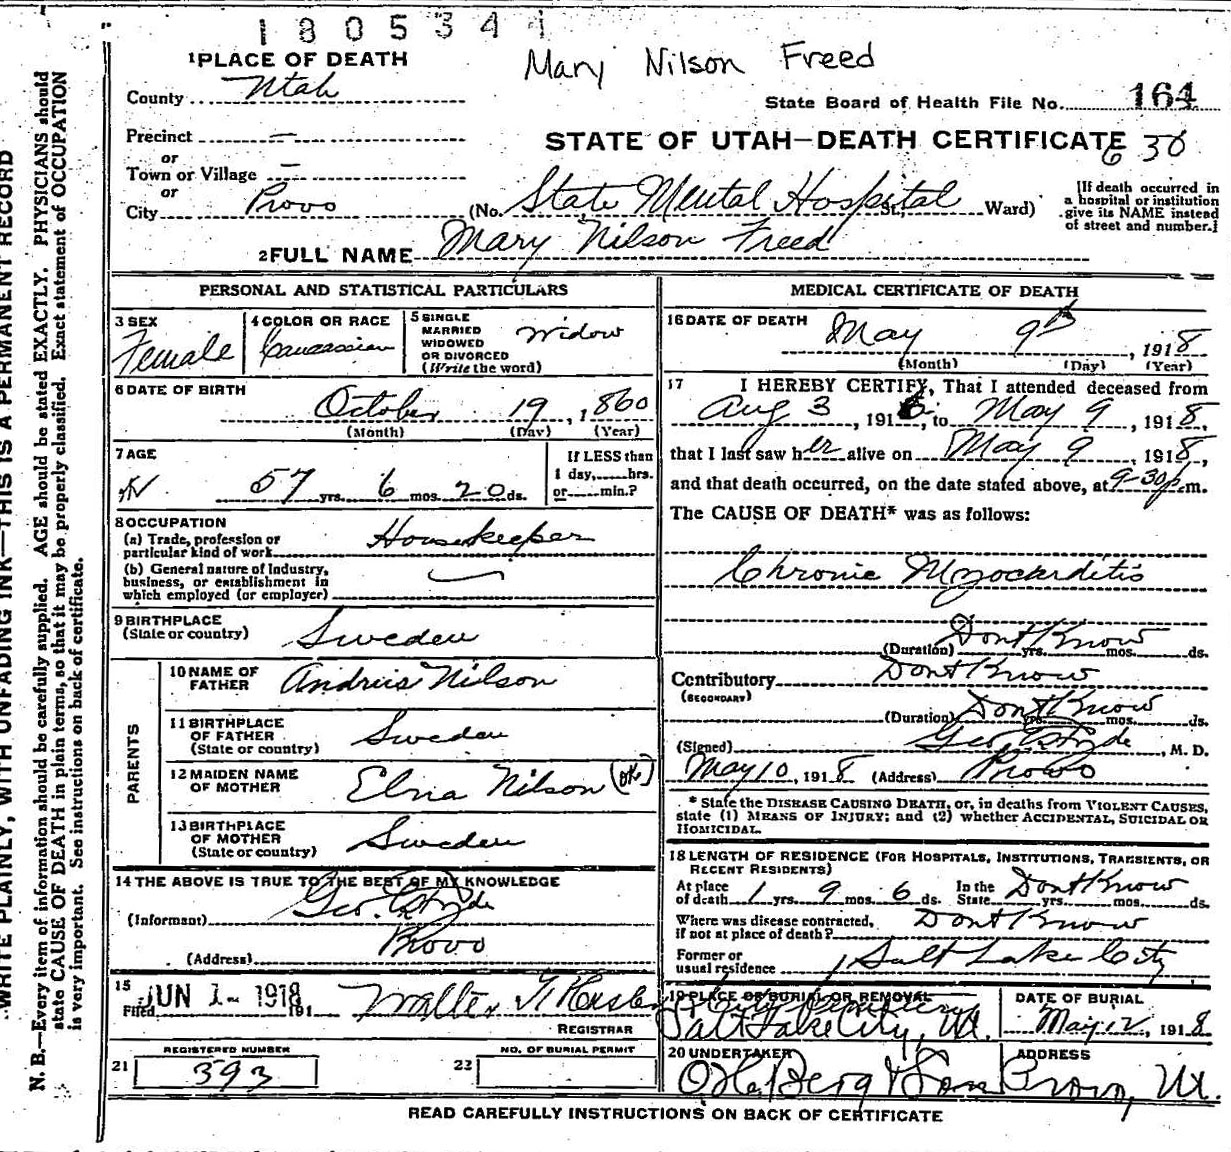 1805341
Mary Nilson Freed
1 PLACE OF DEATH
County Utah
State Board of Health File No. 164
Precinct —
STATE OF UTAH—DEATH CERTIFICATE
630
or
Town or Village —
or
City Provo (No. State Mental Hospital St., Ward)
[If death occurred in
a hospital or institution
give its NAME instead
of street and number.]
2 FULL NAME Mary Nilson Freed
PERSONAL AND STATISTICAL PARTICULARS
3 SEX
Female
4 COLOR OR RACE
Caucassian
5 SINGLE
MARRIED
WIDOWED
OR DIVORCED
(Write the word)
Widow
6 DATE OF BIRTH
October 19, 1860
(Month) (Day) (Year)
7 AGE
57 yrs. 6 mos. 20 ds.
If LESS than
1 day, hrs.
or min.?
8 OCCUPATION
(a) Trade, profession or
particular kind of work Housekeeper
(b) General nature of Industry,
business, or establishment in
which employed (or employer)
9 BIRTHPLACE
(State or country) Sweden
PARENTS
10 NAME OF
FATHER Andrius Nilson
11 BIRTHPLACE
OF FATHER
(State or country) Sweden
12 MAIDEN NAME
OF MOTHER Elna Nilson (OK)
13 BIRTHPLACE
OF MOTHER
(State or country) Sweden
14 THE ABOVE IS TRUE TO THE BEST OF MY KNOWLEDGE
(Informant) Geo. E. Hyde
(Address) Provo
15
Filed JUN 1- 1918, 191
REGISTRAR
REGISTERED NUMBER
21 393
NO. OF BURIAL PERMIT
22
MEDICAL CERTIFICATE OF DEATH
16 DATE OF DEATH
May 9th, 1918
(Month) (Day) (Year)
17 I HEREBY CERTIFY, That I attended deceased from
Aug 3, 1916, to May 9, 1918,
that I last saw her alive on May 9, 1918,
and that death occurred, on the date stated above, at 9-30 p.m.
The CAUSE OF DEATH* was as follows:
Chronic Myocarditis
Dont Know
(Duration) yrs. mos. ds.
Contributory Dont Know
(SECONDARY)
(Duration) Dont Know yrs. mos. ds.
(Signed) Geo E Hyde, M. D.
May 10, 1918 (Address) Provo
* State the DISEASE CAUSING DEATH, or, in deaths from VIOLENT CAUSES,
state (1) MEANS OF INJURY; and (2) whether ACCIDENTAL, SUICIDAL OR
HOMICIDAL.
18 LENGTH OF RESIDENCE (FOR HOSPITALS, INSTITUTIONS, TRANSIENTS, OR
RECENT RESIDENTS)
At place
of death 1 yrs. 9 mos. 6 ds. In the
State Dont Know yrs. mos. ds.
Where was disease contracted,
if not at place of death? Dont Know
Former or
usual residence Salt Lake City
19 PLACE OF BURIAL OR REMOVAL
City Cemetery
Salt Lake City, Ut.
DATE OF BURIAL
May 12, 1918
20 UNDERTAKER
O.H. Berg & Son
ADDRESS
Provo, Ut.
READ CAREFULLY INSTRUCTIONS ON BACK OF CERTIFICATE
WRITE PLAINLY, WITH UNFADING INK—THIS IS A PERMANENT RECORD
N. B.—Every item of information should be carefully supplied. AGE should be stated EXACTLY. PHYSICIANS should
state CAUSE OF DEATH in plain terms, so that it may be properly classified. Exact statement of OCCUPATION
is very important. See instructions on back of certificate.